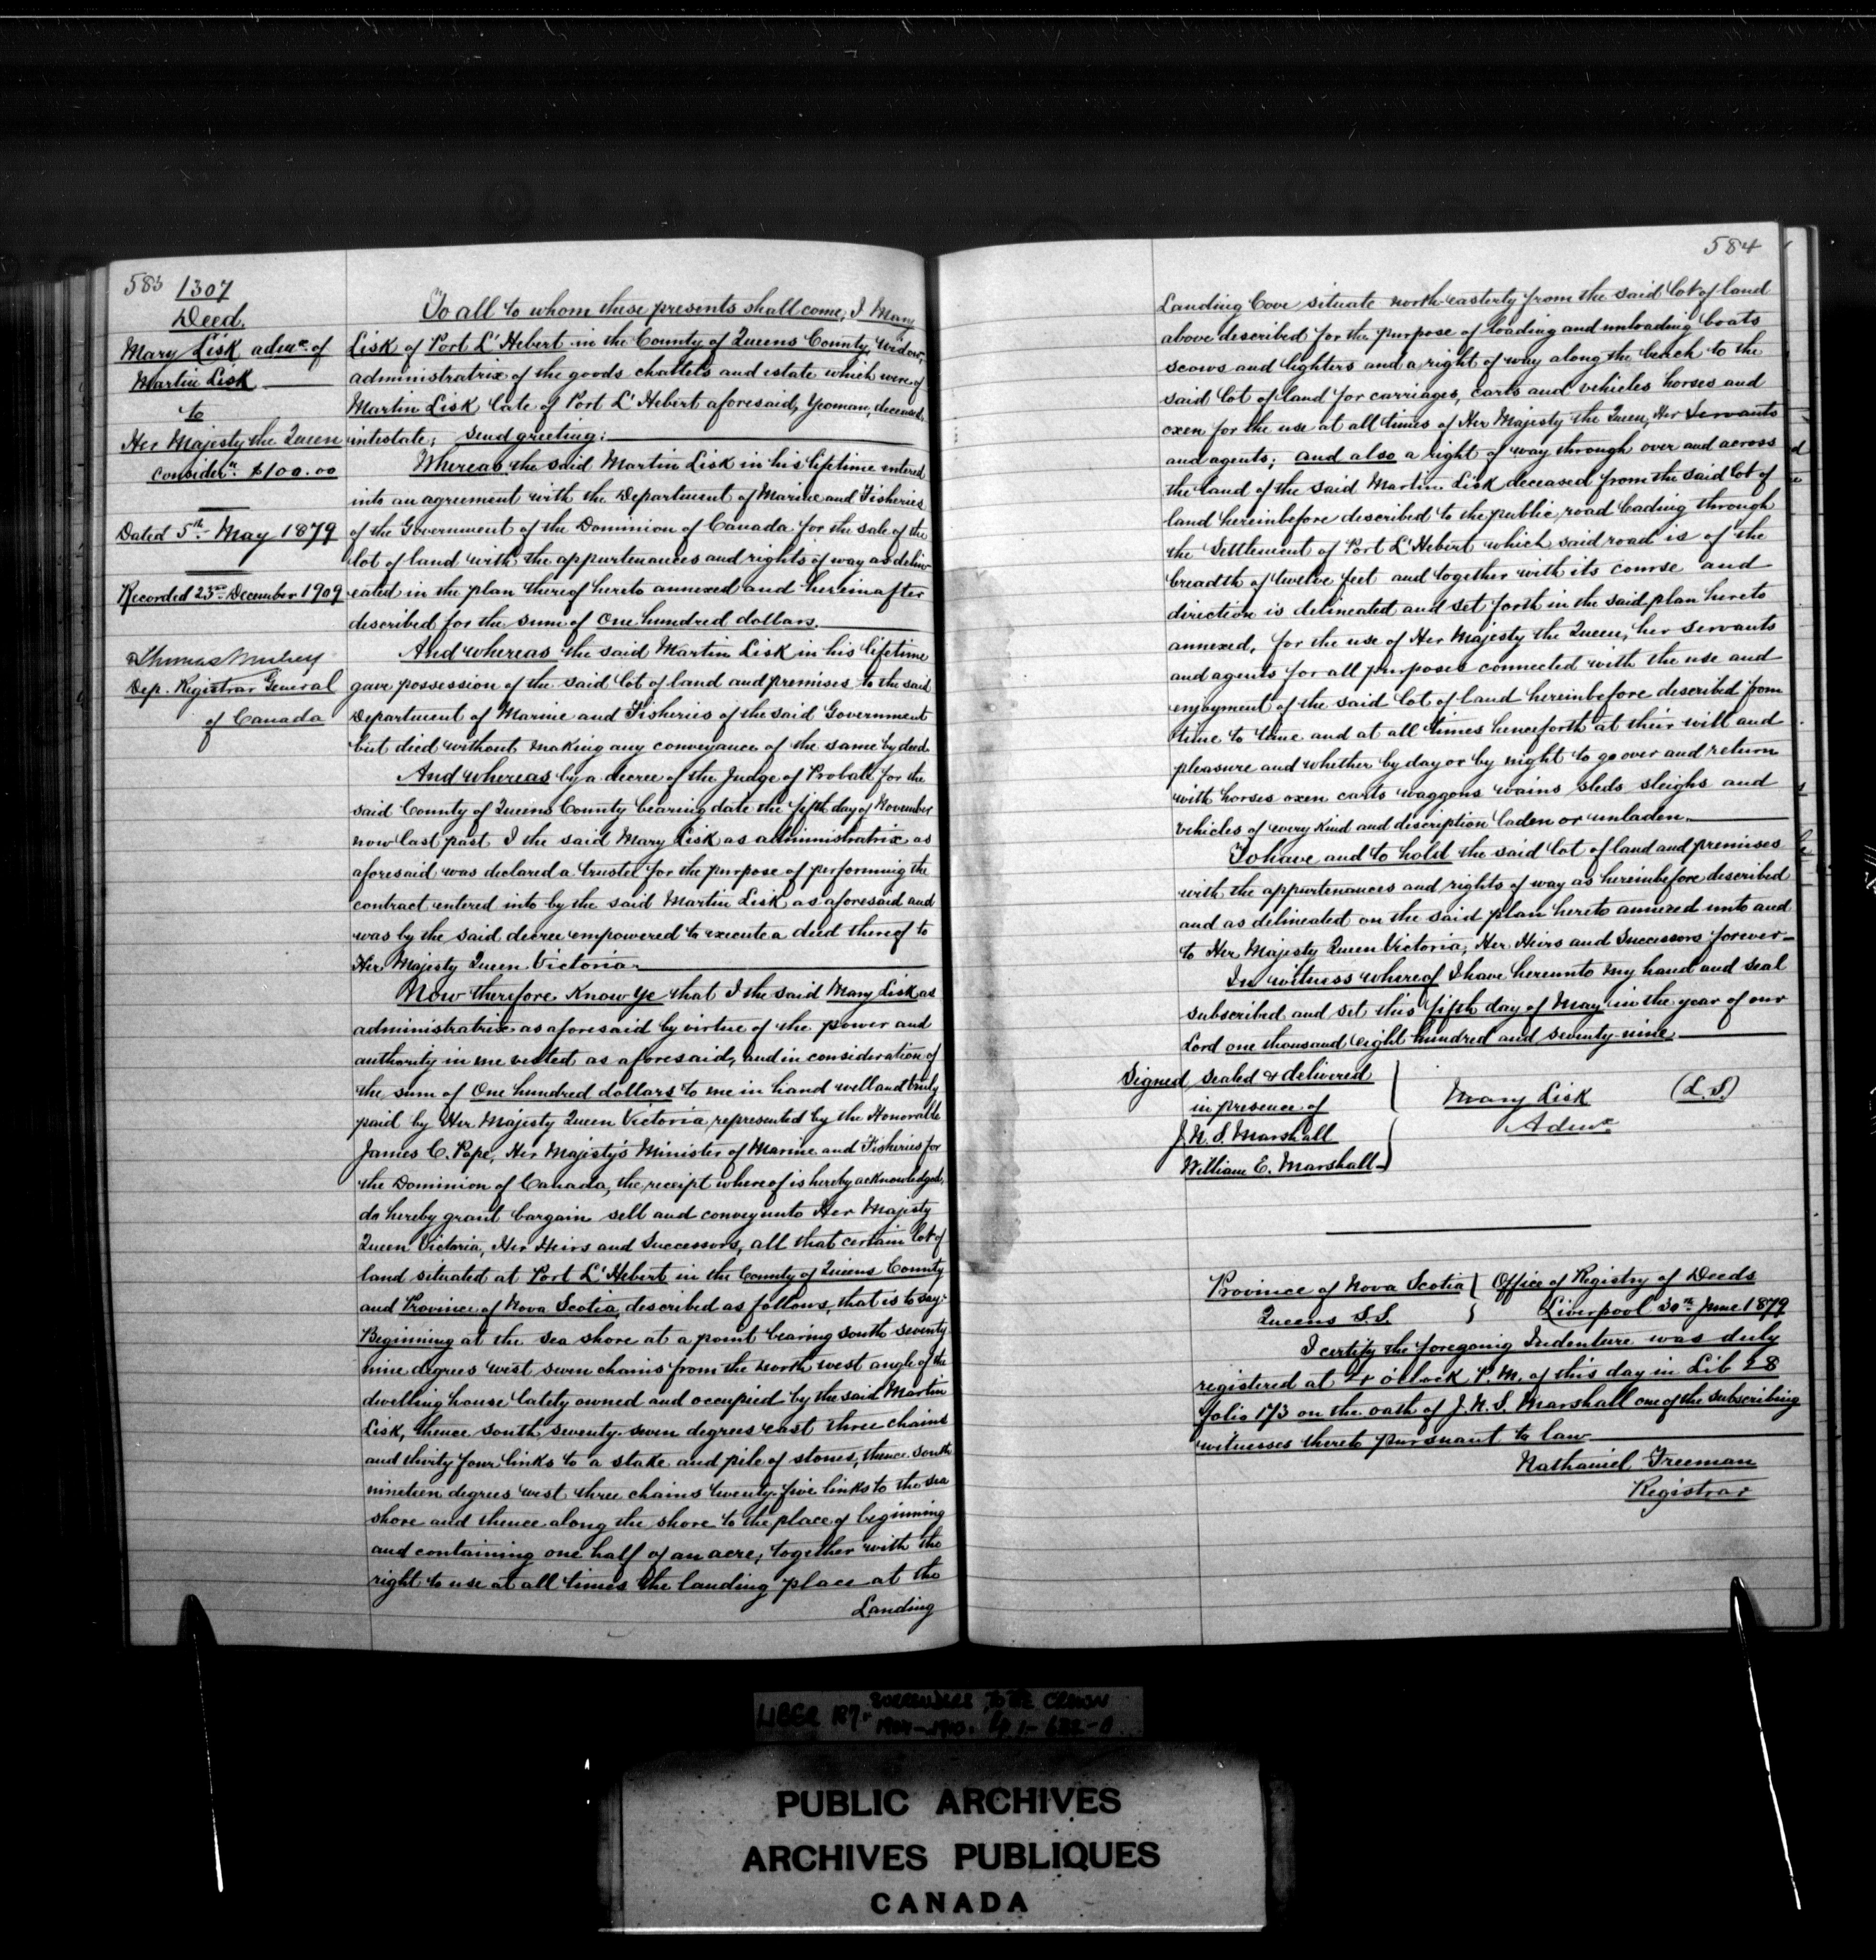 583
1307
Deed.
Mary Lisk admx. of
Martin Lisk
to
Her Majesty the Queen
Considern. $100.00
Dated 5th May 1879
Recorded 23rd December 1909
Thomas Mulvey
Dep. Registrar General
of Canada
To all to whom these presents shall come, I Mary
Lisk of Port L'Hebert in the County of Queens County, Widow,
administratrix of the goods chattels and estate which were of
Martin Lisk late of Port L'Hebert aforesaid, Yeoman, deceased,
intestate; Send greeting:
Whereas the said Martin Lisk in his lifetime entered
into an agreement with the Department of Marine and Fisheries
of the Government of the Dominion of Canada for the sale of the
lot of land with the appurtenances and rights of way as delin-
eated in the plan thereof hereto annexed and hereinafter
described for the sum of One hundred dollars.
And whereas the said Martin Lisk in his lifetime
gave possession of the said lot of land and premises to the said
Department of Marine and Fisheries of the said Government
but died without making any conveyance of the same by deed.
And whereas by a decree of the Judge of Probate for the
said County of Queens County bearing date the fifth day of November
now last past I the said Mary Lisk as administratrix as
aforesaid was declared a trustee for the purpose of performing the
contract entered into by the said Martin Lisk as aforesaid and
was by the said decree empowered to execute a deed thereof to
Her Majesty Queen Victoria.
Now therefore Know Ye that I the said Mary Lisk as
administratrix as aforesaid by virtue of the power and
authority in me vested as aforesaid, and in consideration of
the sum of One hundred dollars to me in hand well and truly
paid by Her Majesty Queen Victoria, represented by the Honorable
James C. Pope, Her Majesty's Minister of Marine and Fisheries for
the Dominion of Canada, the receipt whereof is hereby acknowledged,
do hereby grant bargain sell and convey unto Her Majesty
Queen Victoria, Her Heirs and Successors, all that certain lot of
land situated at Port L'Hebert in the County of Queens County
and Province of Nova Scotia, described as follows, that is to say:
Beginning at the sea shore at a point bearing south seventy
nine degrees west seven chains from the north west angle of the
dwelling house lately owned and occupied by the said Martin
Lisk, thence south seventy-seven degrees east three chains
and thirty four links to a stake and pile of stones, thence south
nineteen degrees west three chains twenty-five links to the sea
shore and thence along the shore to the place of beginning
and containing one half of an acre; together with the
right to use at all times the landing place at the
Landing
584
Landing Cove situate north-easterly from the said lot of land
above described for the purpose of loading and unloading boats
scows and lighters and a right of way along the beach to the
said lot of land for carriages, carts and vehicles horses and
oxen for the use at all times of Her Majesty the Queen, Her Servants
and agents; and also a right of way through over and across
the land of the said Martin Lisk deceased from the said lot of
land hereinbefore described to the public road leading through
the Settlement of Port L'Hebert which said road is of the
breadth of twelve feet and together with its course and
direction is delineated and set forth in the said plan hereto
annexed, for the use of Her Majesty the Queen, her servants
and agents for all purposes connected with the use and
enjoyment of the said lot of land hereinbefore described from
time to time and at all times henceforth at their will and
pleasure and whether by day or by night to go over and return
with horses oxen carts waggons wains sleds sleighs and
vehicles of every kind and description laden or unladen.
To have and to hold the said lot of land and premises
with the appurtenances and rights of way as hereinbefore described
and as delineated on the said plan hereto annexed unto and
to Her Majesty Queen Victoria, Her Heirs and Successors forever.
In witness whereof I have hereunto my hand and seal
subscribed and set this fifth day of May in the year of our
Lord one thousand eight hundred and seventy-nine.
Signed sealed & delivered
in presence of
J. N. S. Marshall
William E. Marshall
Mary Lisk (L.S.)
Admx.
Province of Nova Scotia
Queens S.S.
Office of Registry of Deeds
Liverpool 30th June 1879
I certify the foregoing Indenture was duly
registered at 4 o'clock P.M. of this day in Lib 28
folio 173 on the oath of J. N. S. Marshall one of the subscribing
witnesses thereto pursuant to law
Nathaniel Freeman
Registrar
LIBER 187. SURRENDERS TO THE CROWN
PUBLIC ARCHIVES
ARCHIVES PUBLIQUES
CANADA